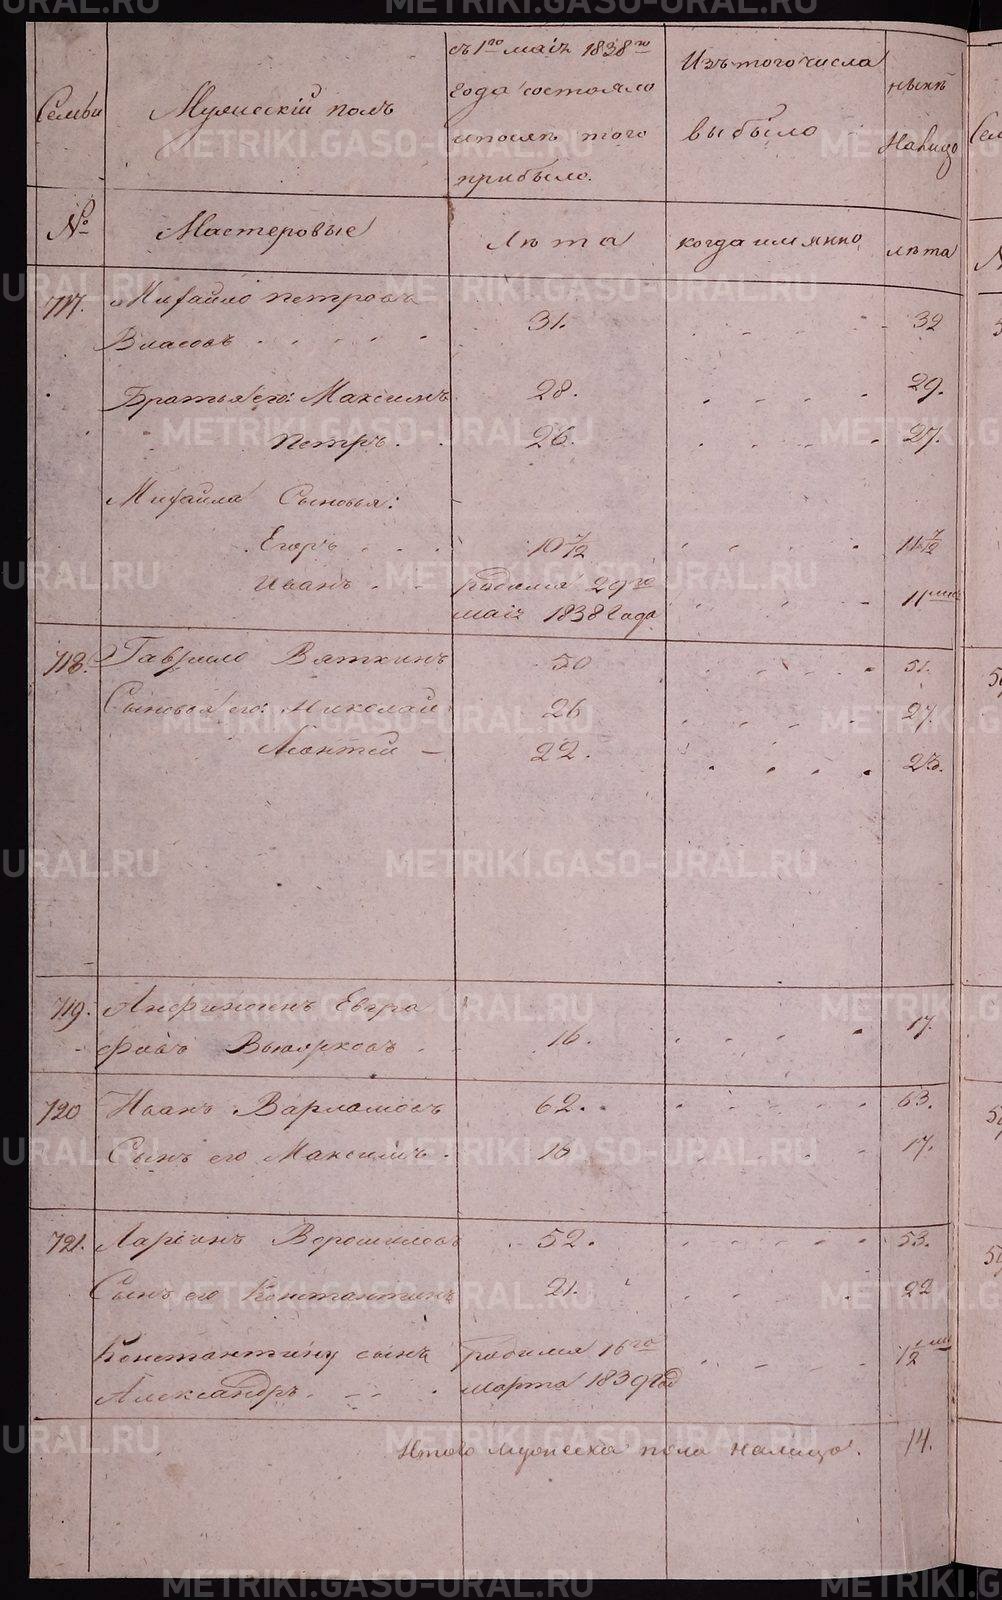 Семьи
Мужескій полъ
съ 1го маія 1838го
года состояло
и послѣ того
прибыло.
Изъ того числа
выбыло
нынѣ
налицо
№
Мастеровые
Лѣта
когда имянно
лѣта
717. Михайло Петровъ
Власовъ 31. 32
Братья его: Максимъ 28. 29.
Петръ 26. 27.
Михайла Сыновья:
Егоръ 10 7/12 11 7/12
Иванъ родился 29го 11 мес
маія 1838 года
718. Гаврило Вяткинъ 50 51.
Сыновья его: Николай 26 27.
Леонтей 22. 23.
719. Евгра
фовъ 16. 17.
720 Иванъ Варламовъ 62. 63.
Сынъ его Максимъ 16 17.
721. Ларіонъ Ворошиловъ 52. 53.
Сынъ его Константинъ 21. 22
Константину сынъ родился 16го 1/2 мес
Александръ марта 1839 год
Итого мужеска пола налицо. 14.
METRIKI.GASO-URAL.RU